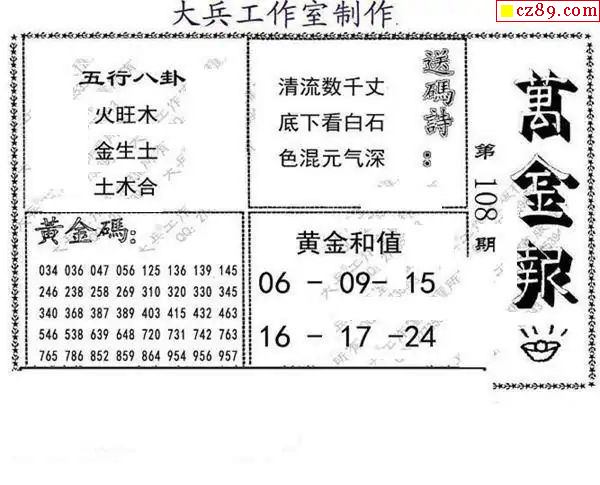 大兵工作室制作
cz89.com
五行八卦
火旺木
金生土
土木合
清流数千丈
底下看白石
色混元气深
送碼詩：
萬金報
第108期
黄金碼：
034 036 047 056 125 136 139 145
246 238 258 269 310 320 330 345
340 368 387 389 403 415 432 463
546 538 639 648 720 731 742 763
765 786 852 859 864 954 956 957
黄金和值
06 - 09- 15
16 - 17 -24